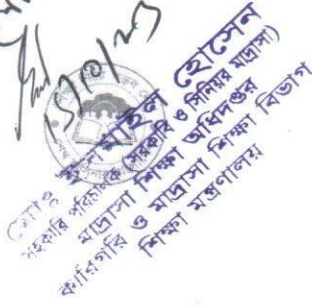 ১৫/১০/২৩
মোঃ ইসমাইল হোসেন
সহকারি পরিচালক (সরকারি ও সিনিয়র মাদ্রাসা)
মাদ্রাসা শিক্ষা অধিদপ্তর
কারিগরি ও মাদ্রাসা শিক্ষা বিভাগ
শিক্ষা মন্ত্রণালয়